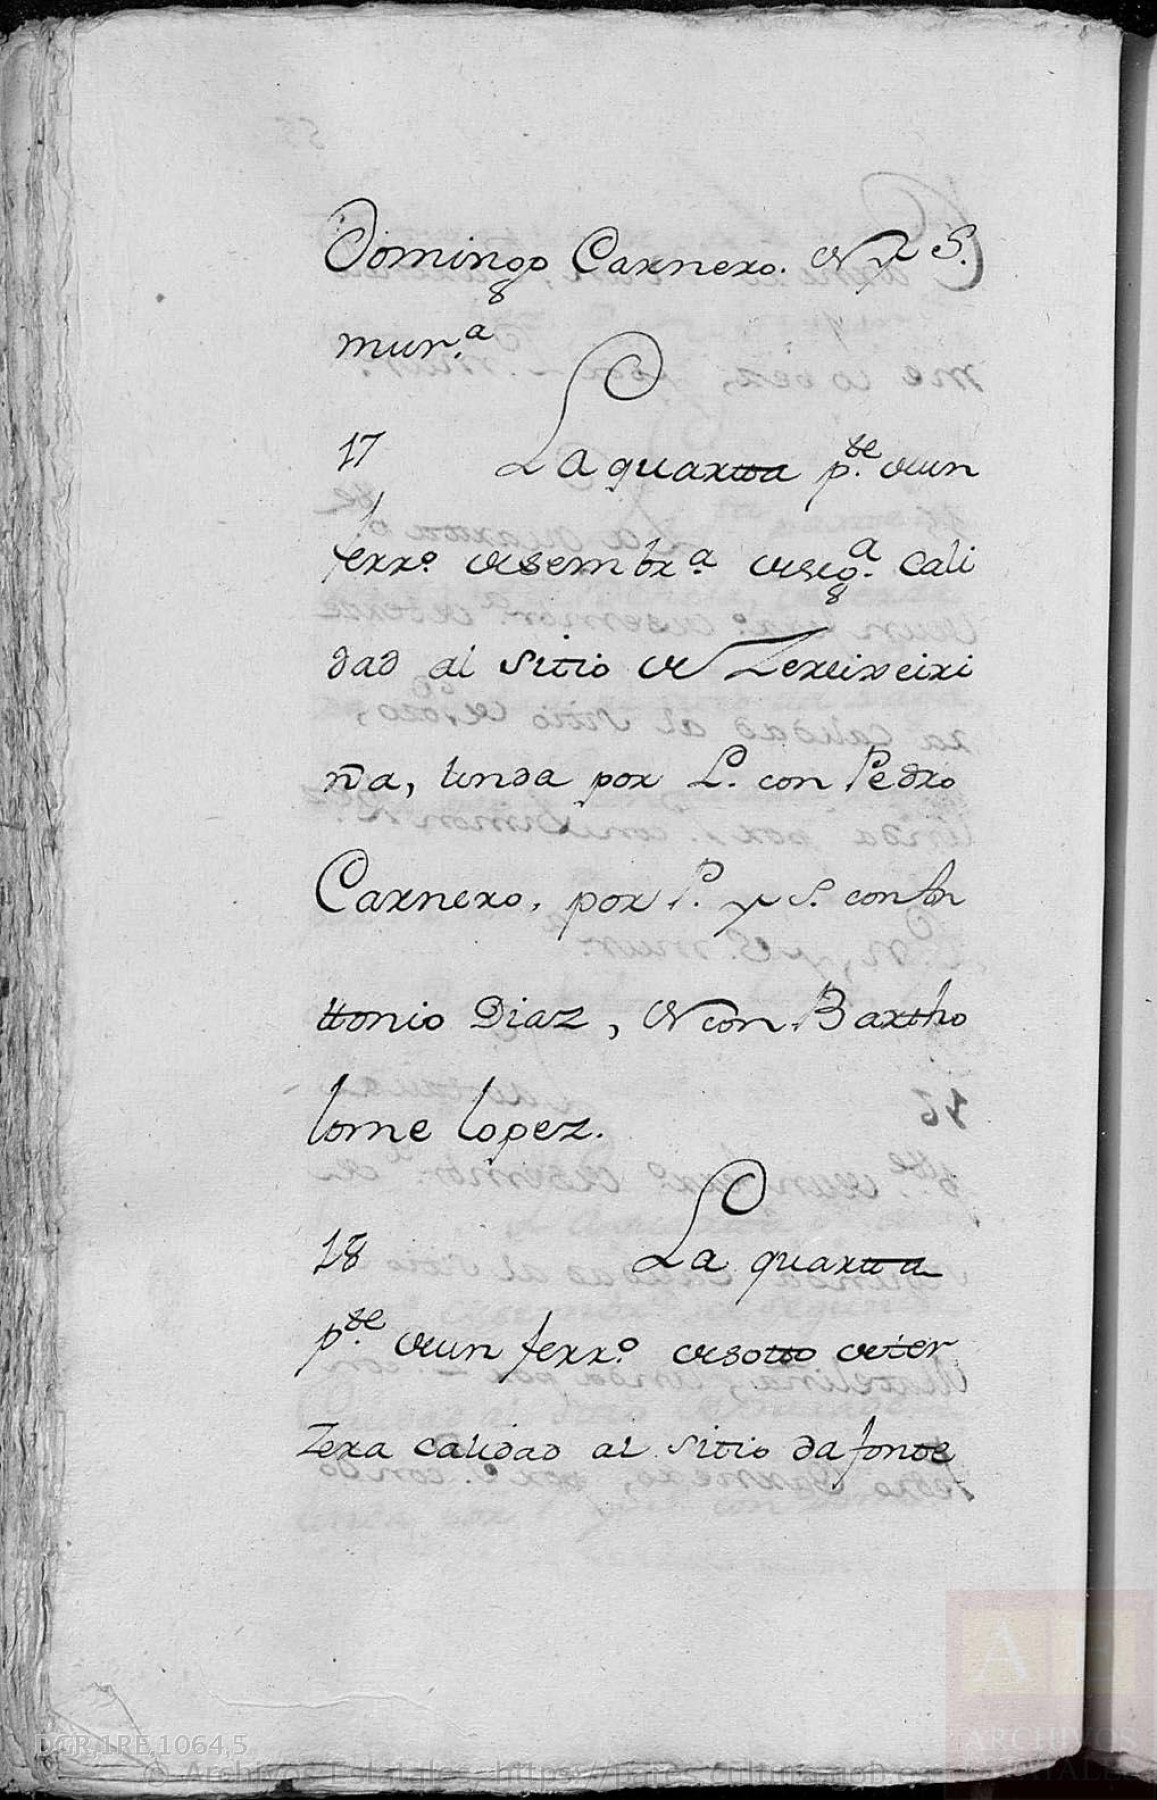 Domingo Carnero. N y S.
mur.ª
17 La quartta p.te de un
ferr.º de sembr.ª de seg.ª cali
dad al sitio de Zereixeiri
ña, linda por L. con Pedro
Carnero, por P. y S. con An
ttonio Diaz, N con Bartho
lome Lopez.
18 La quartta
p.te de un ferr.º de sotto de ter
zera calidad al sitio da fonte
DGR,1RE,1064,5
© Archivos Estatales https://pares.cultura.gob.es
AE
ARCHIVOS
ESTATALES